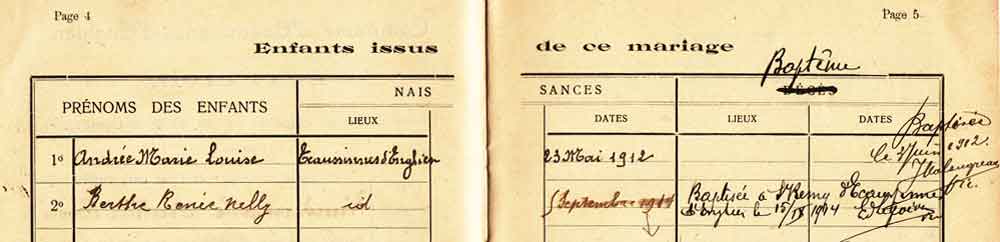 Page 4
Page 5
Enfants issus de ce mariage
Baptême
PRÉNOMS DES ENFANTS
NAISSANCES
DÉCÈS
LIEUX
DATES
LIEUX
DATES
1º Andrée Marie Louise
Ecaussinnes d'Enghien
23 Mai 1912
Baptisée
le juin 1912
2º Berthe Renée Nelly
id
Septembre 1914
Baptisée à St Remy d'Ecaussinnes
d'Enghien le 15/IX 1914